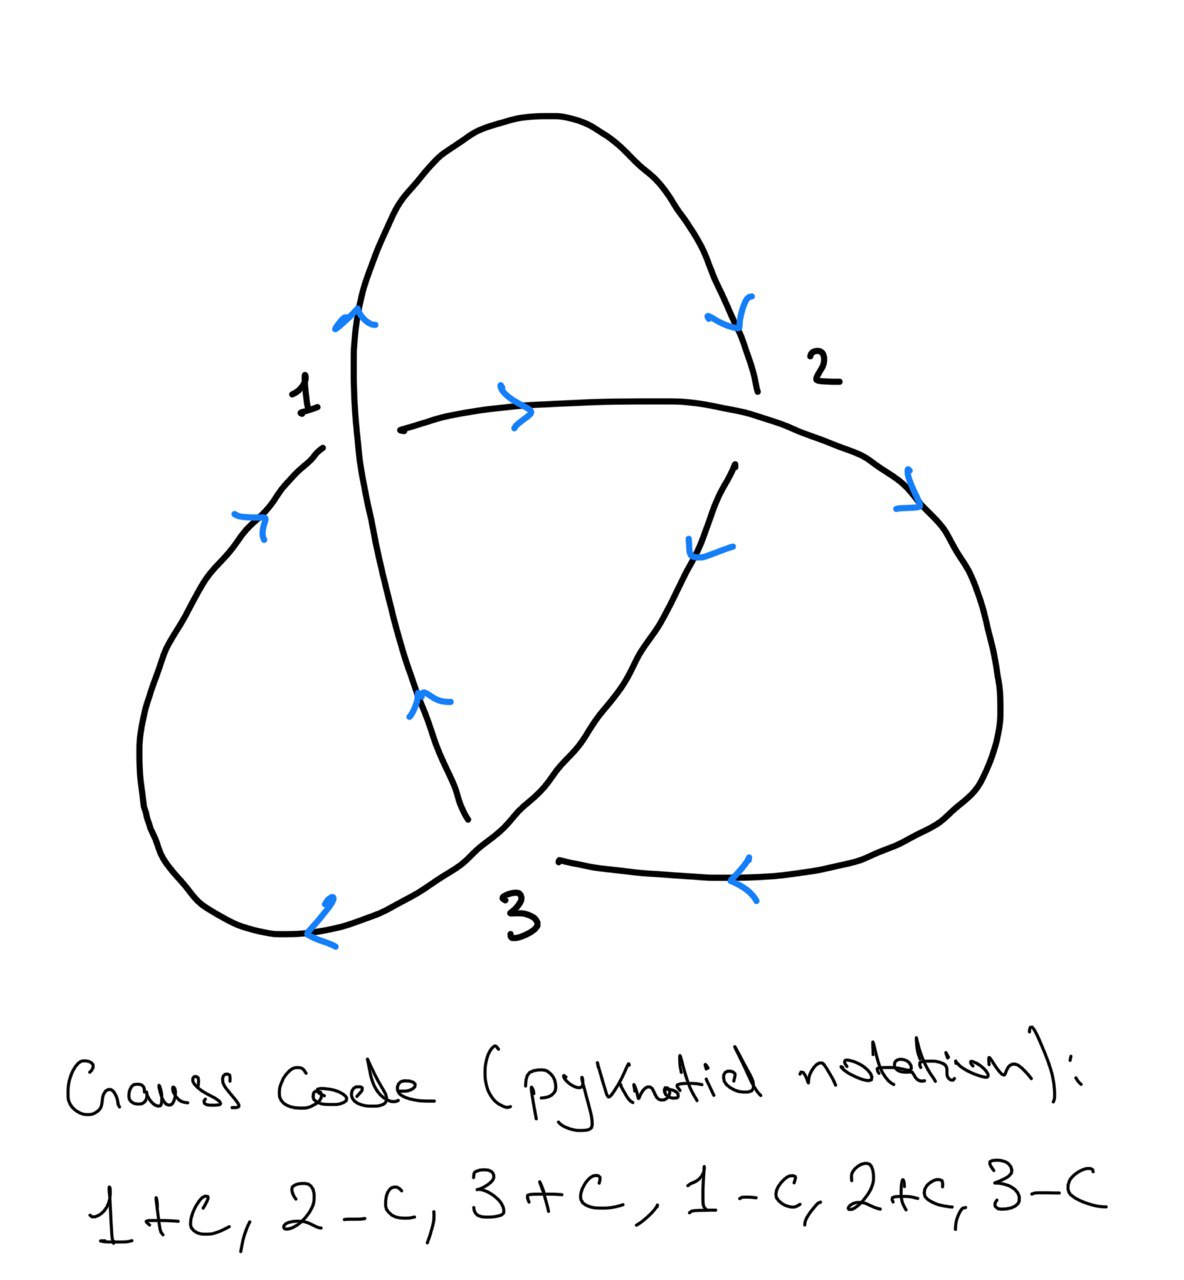 1
2
3
Gauss Code (pyknotid notation):
1+c, 2-c, 3+c, 1-c, 2+c, 3-c